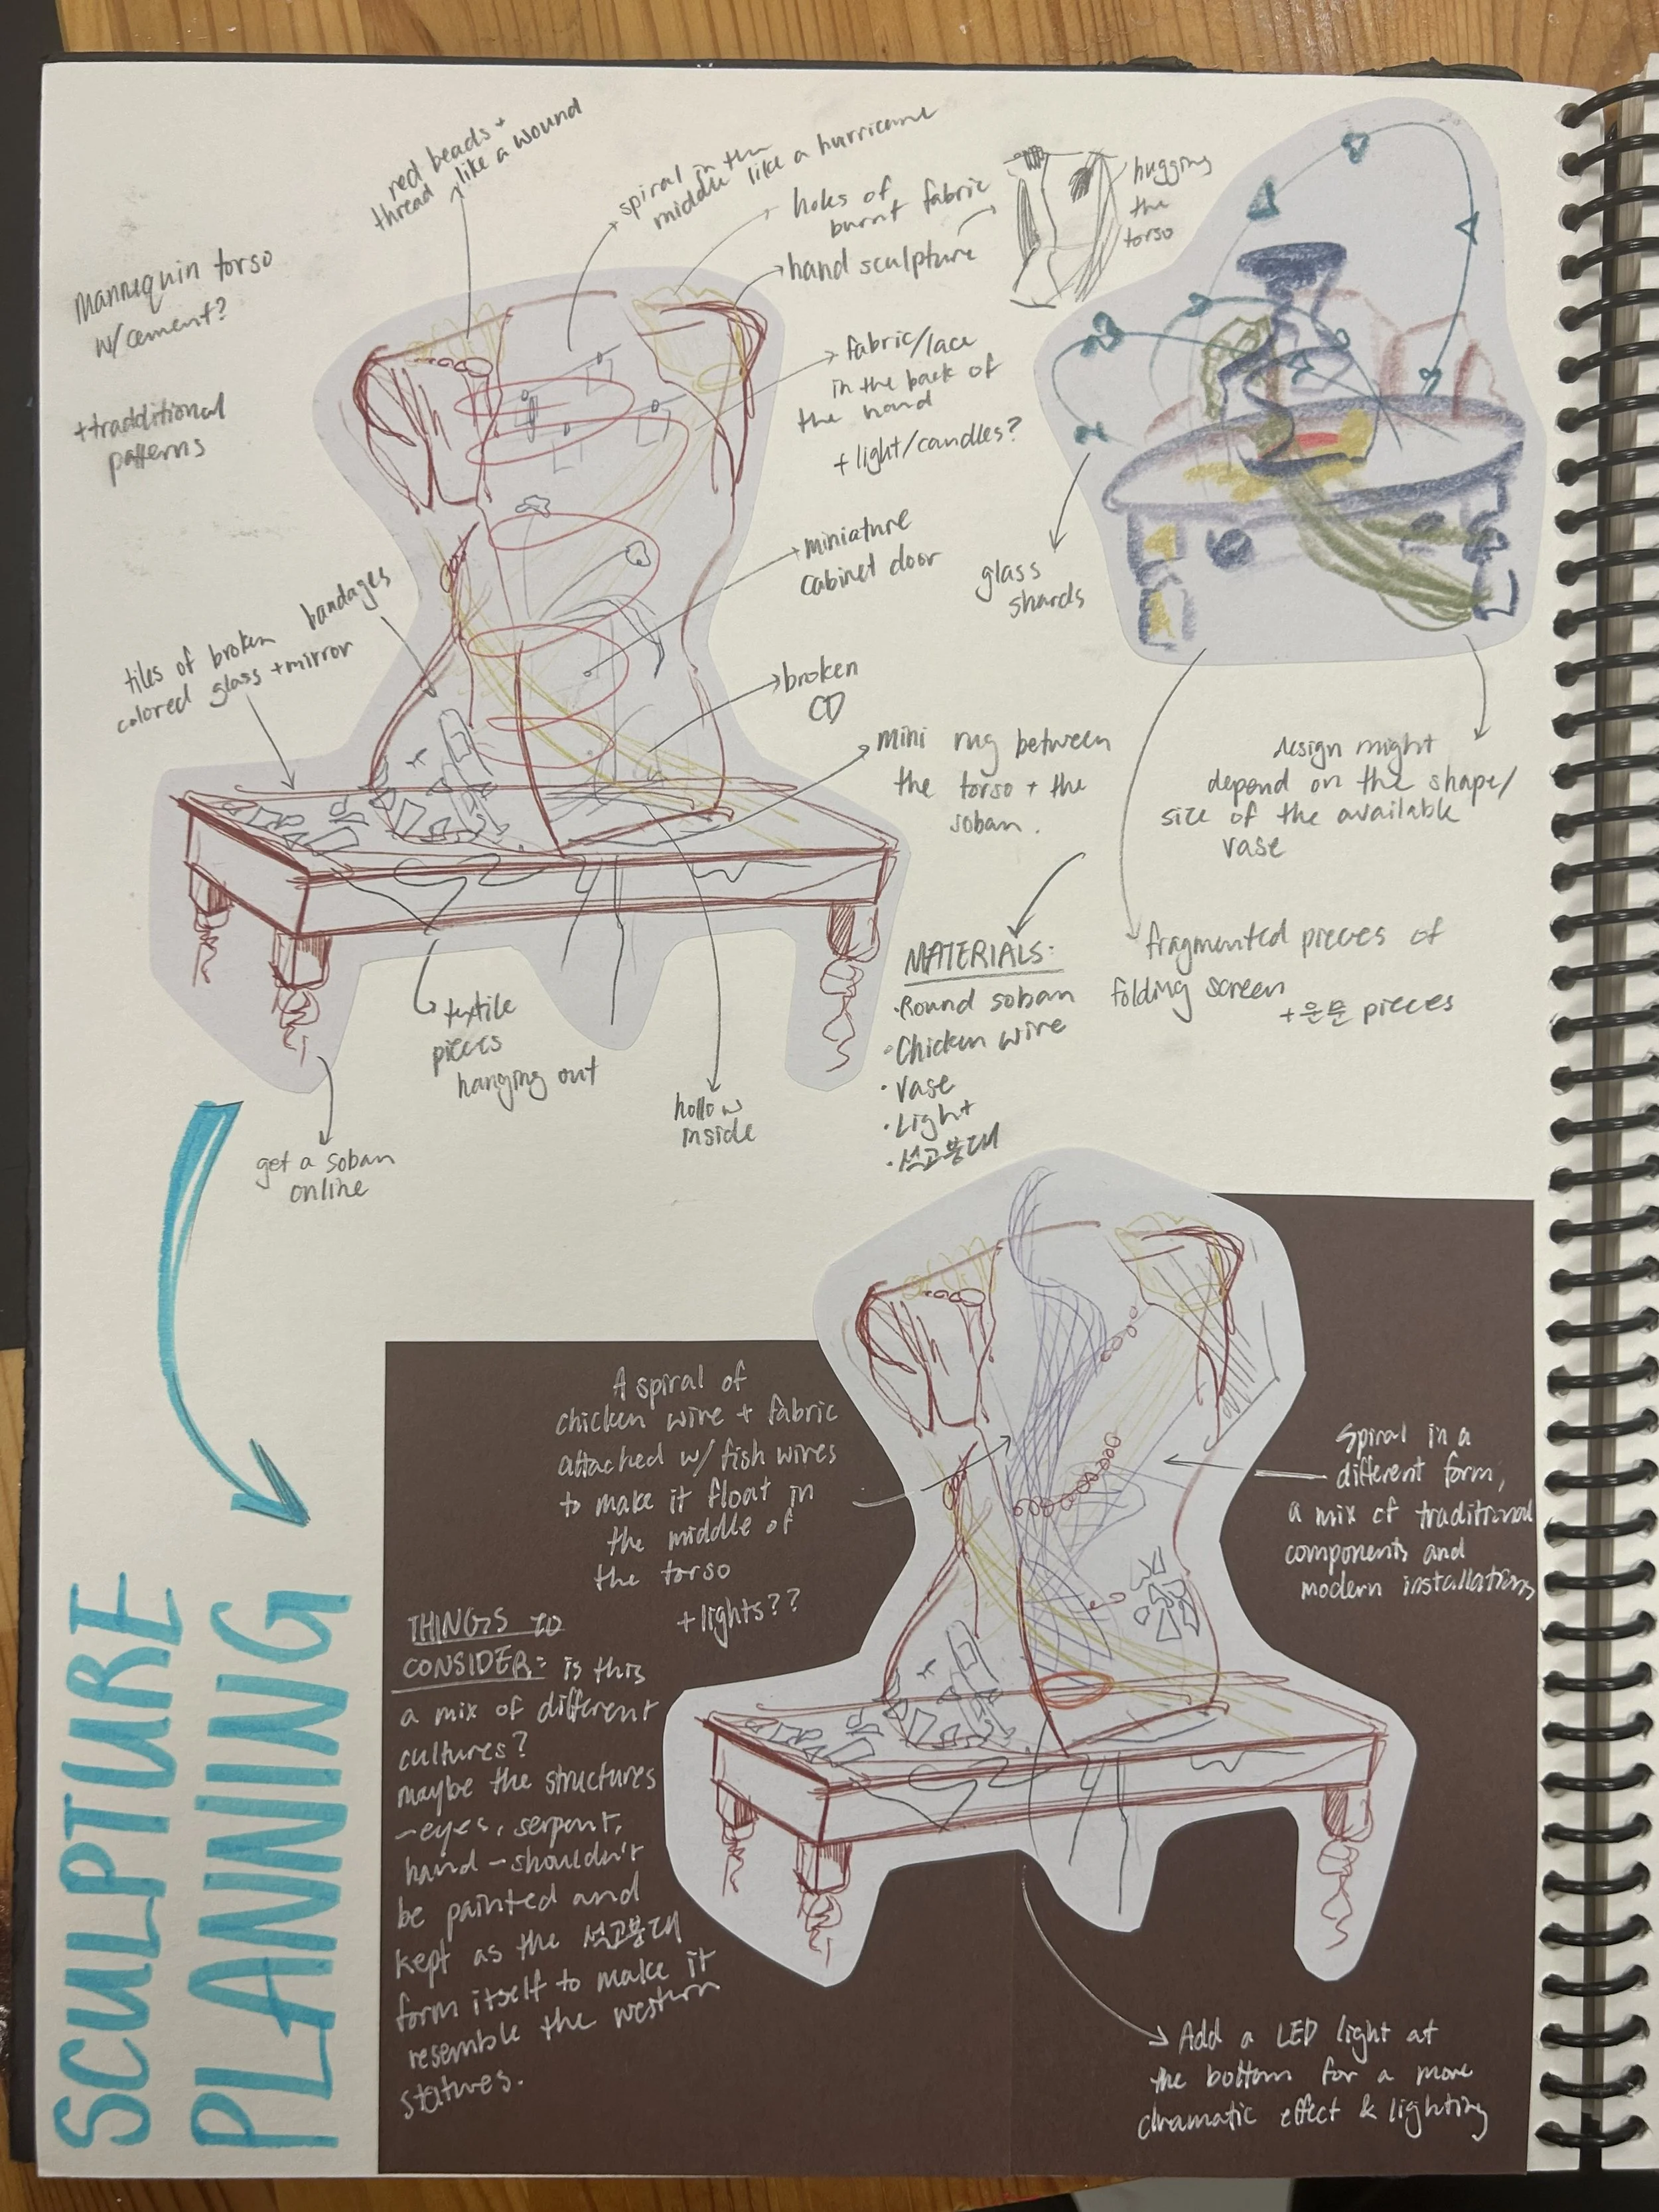 red beads +
thread like a wound
spiral in the
middle like a hurricane
holes of
burnt fabric
hand sculpture
hugging
the
torso
Mannequin torso
w/ cement?
+ tradditional
patterns
fabric/lace
in the back of
the hand
+ light/candles?
miniature
cabinet door
glass
shards
bandages
tiles of broken
colored glass + mirror
broken
CD
mini rug between
the torso + the
soban.
design might
depend on the shape/
size of the available
vase
MATERIALS:
• Round soban
• Chicken wire
• Vase
• Light
• 석고붕대
fragmented pieces of
folding screen
+ 운문 pieces
textile
pieces
hanging out
hollow
inside
get a soban
online
SCULPTURE
PLANNING
A spiral of
chicken wire + fabric
attached w/ fish wires
to make it float in
the middle of
the torso
+ lights??
Spiral in a
different form,
a mix of traditional
components and
modern installations
THINGS TO
CONSIDER: is this
a mix of different
cultures?
maybe the structures
- eyes, serpent,
hand - shouldn't
be painted and
kept as the 석고붕대
form itself to make it
resemble the western
statues.
Add a LED light at
the bottom for a more
dramatic effect & lighting